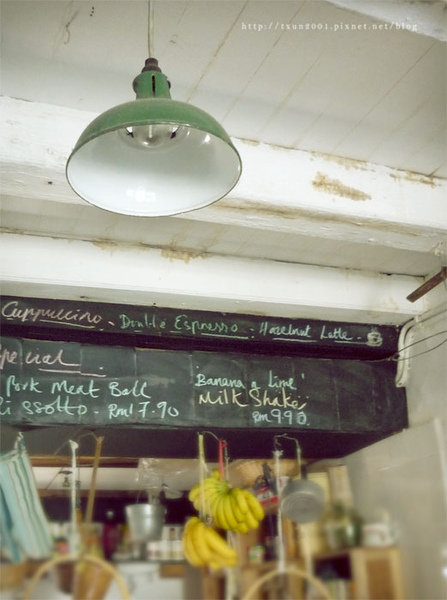 http://txun2001.pixnet.net/blog
Cuppuccino - Double Espresso - Hazelnut Latte -
pecial
Pork Meat Ball
Ri ssotto - RM17.90
'Banana & Lime'
Milk Shake
RM 990